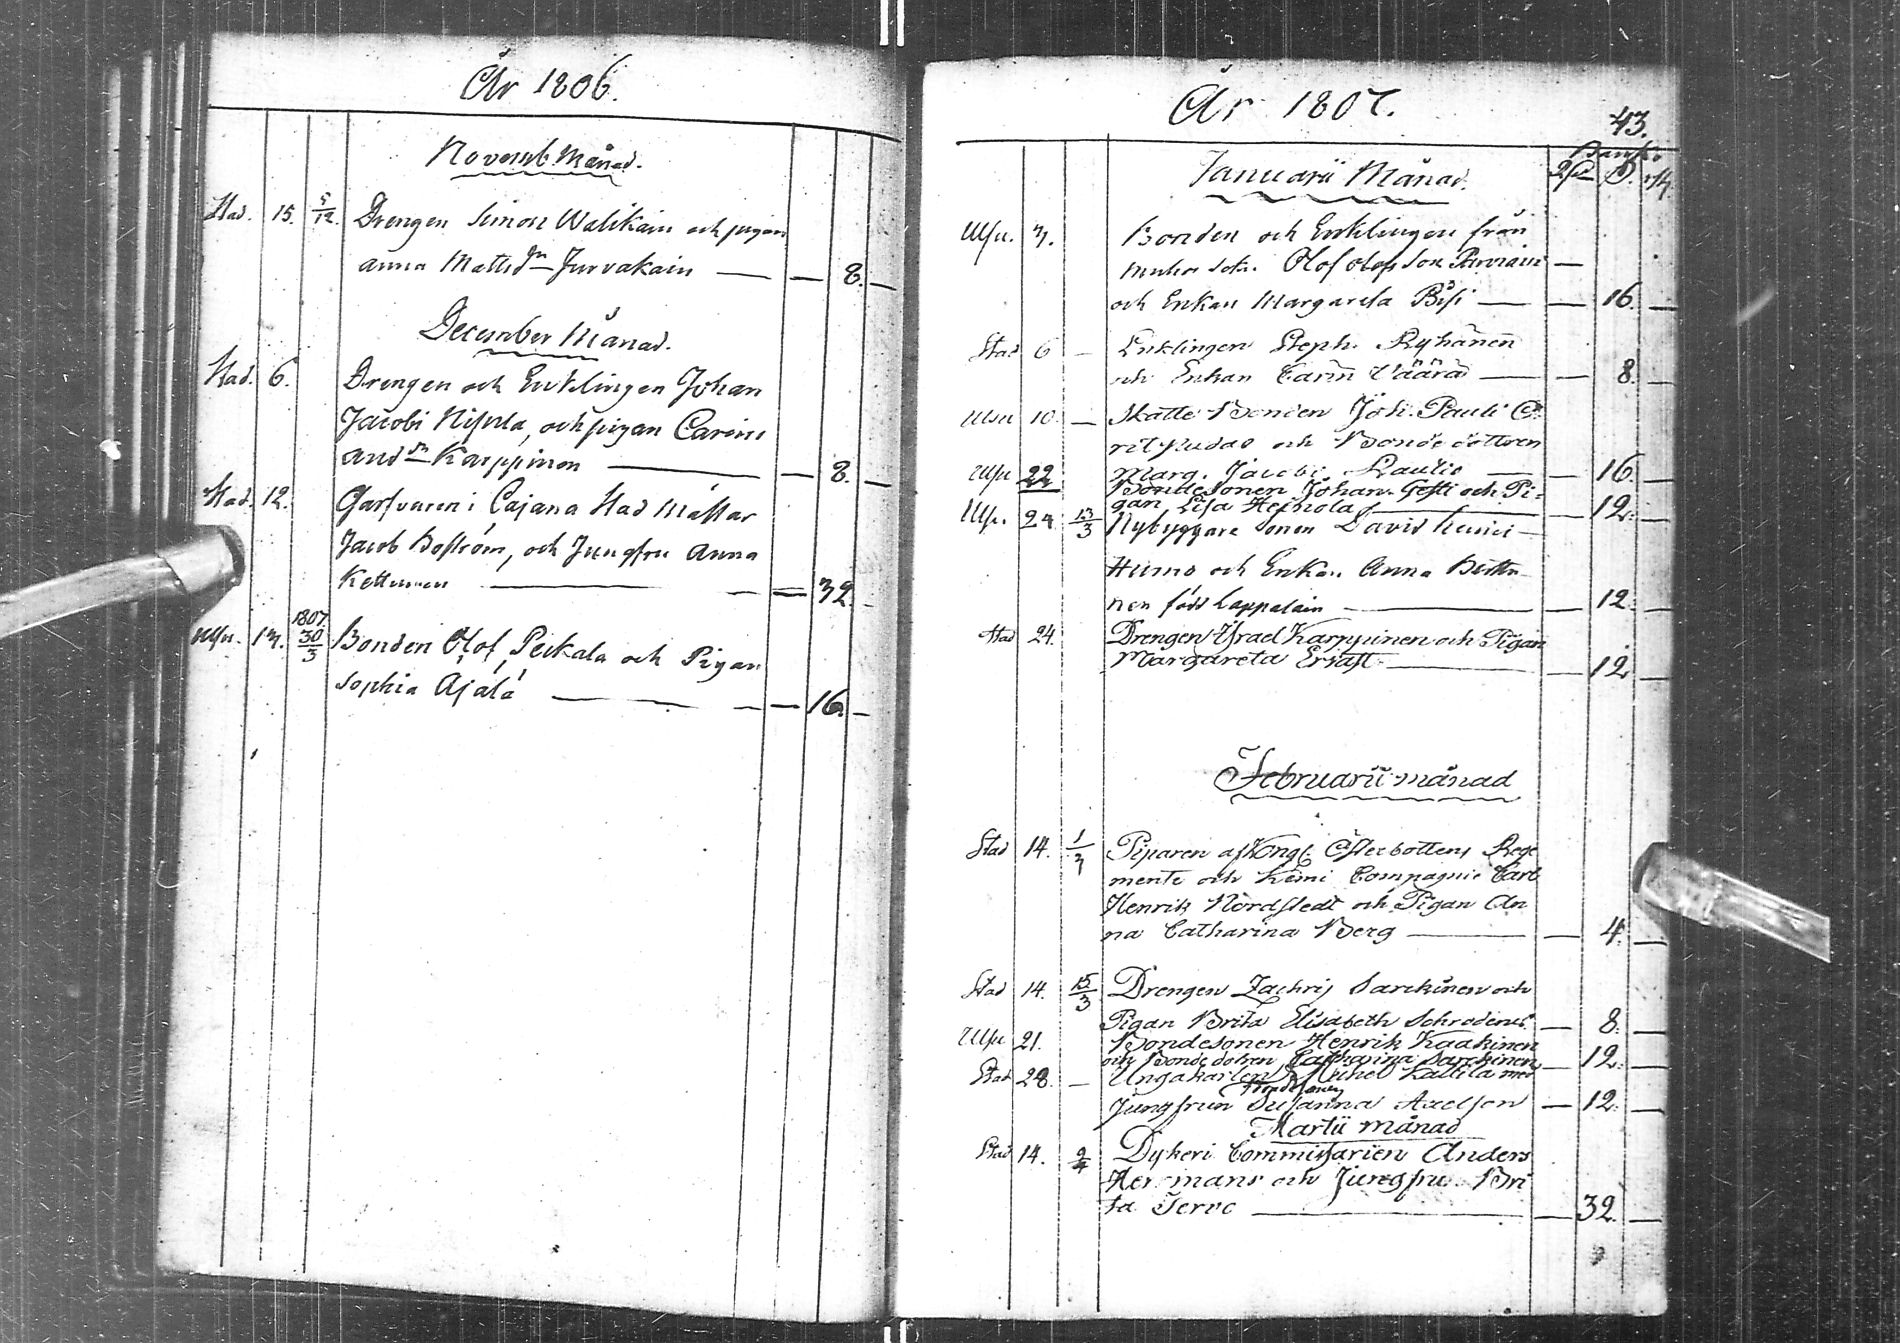 År 1806.
Novemb. Månad.
Stad. 15. 5/12. Drengen Simon Walikain och pigan
Anna Matts dr Jurvakain — — 8. —
December Månad.
Stad. 6. Drengen och Enklingen Johan
Jacobi Nissila, och pigan Carin
And dr Karppinen — — 8. —
Stad. 12. Garfvaren i Cajana Stad Mästar
Jacob Boström, och Jungfru Anna
Kettunen — — 32 -
1807.
Ulsu. 13. 30/3 Bonden Olof Peckala och Pigan
Sophia Ajala — — 16. —
År 1807.
43.
Banko
Januarii Månad.
Ulsu. 3. Bonden och Enklingen från
Muhos sokn. Olof Olofsson Parviain —
och Enkan Margareta — — 16. —
Stad 6 — Enklingen Steph. Ryhänen
och Enkan Carin Väärä — — 8. —
Ulsu 10. — Skatte Bonden Joh. Pauli
och Bonde dottren
Ulsu 22 Marg. Jacobi Laulio — — 16. —
Bondesonen Johan och Pi-
gan Lisa Heikola — — 12. —
Ulsu. 24 13/3 Nybyggare Sonen David
Humo och Enkan Anna
nen född Lappalain — — 12. —
Stad 24. Drengen Israel Karppinen och Pigan
Margareta Ersast — — 12 —
Februarii månad
Stad 14. 1/3 Piparen af Kongl Österbottens Rege
mente och Kemi Compagnie Carl
Henrik Nordstedt och Pigan An
na Catharina Berg — — 4. —
Stad 14. 15/3 Drengen Zachris Sarckinen och
Pigan Brita Elisabeth — 8. —
Ulsu 21. Bondesonen Henrik Kaakinen
och Bonde dotren Catharina Sarckinen — 12. —
Stad 28. — Ungakarlen Michel Kallila med
Jungfrun Susanna Axelson — 12. —
Martii månad
Stad 14. 2/4 Dykeri Commissarien Anders
Hermans och Jungfru Bri
ta Tervo — — 32. —